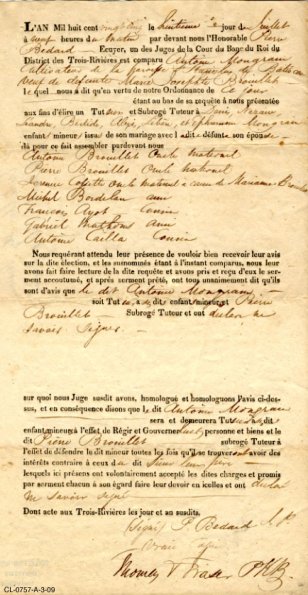 L'AN Mil huit cent vingt le huitieme jour de Juillet
à neuf heures du matin par devant nous l'Honorable Pierre
Bedard Ecuyer, un des Juges de la Cour du Banc du Roi du
District des Trois-Rivières est comparu Antoine Mongrain
Cultivateur de la
veuf de defunte Marie Josephte Brouillet
lequel nous a dit qu'en vertu de notre Ordonnance de Ce jour
étant au bas de sa enquête à nous présentée
aux fins d'élire un Tuteur et Subrogé Tuteur à
Mongrain
enfant mineur issu de son mariage avec la dit défunte son épouse
dû pour ce fait assembler pardevant nous
Antoine Brouillet Oncle maternel
Pierre Brouillet Oncle maternel
Oncle maternel a cause de Marianne
Michel Bordelau ami
Francois Ayot Cousin
Gabriel ami
Antoine Cailla Cousin
Nous requérant attendu leur présence de vouloir bien recevoir leur avis
sur la dite élection, et les susnommés étant à l'instant comparus, nous
leur avons fait faire lecture de la dite requête et avons pris et reçu d'eux le ser-
ment accoutumé, et après serment prêté, ont tous unanimement dit qu'ils
sont d'avis que le dit Antoine Mongrain
soit Tuteur dit enfant mineur et Pierre
Brouillet Subrogé Tuteur et ont declaré ne
savoir Signer
sur quoi nous Juge susdit avons, homologué et homologuons l'avis ci-des-
sus, et en conséquence disons que le dit Antoine Mongrain
sera et demeurera Tuteur
dit enfant mineur à l'effet de Régir et Gouverner personne et biens et le dit
Pierre Brouillet subrogé Tuteur à
l'effet de défendre la dit mineur toutes les fois qu'il se trouveront avoir des
intérêts contraire à ceux du dit Sieur leur père
lesquels ici présens ont volontairement accepté les dites charges et promis
par serment chacun à son égard faire leur devoir en icelles et ont declaré
ne Savoir signer
Dont acte aux Trois-Rivières les jour et an susdits.
(Signé) P Bedard
Vraie
Thomas Fraser
CL-0757-A-3-09